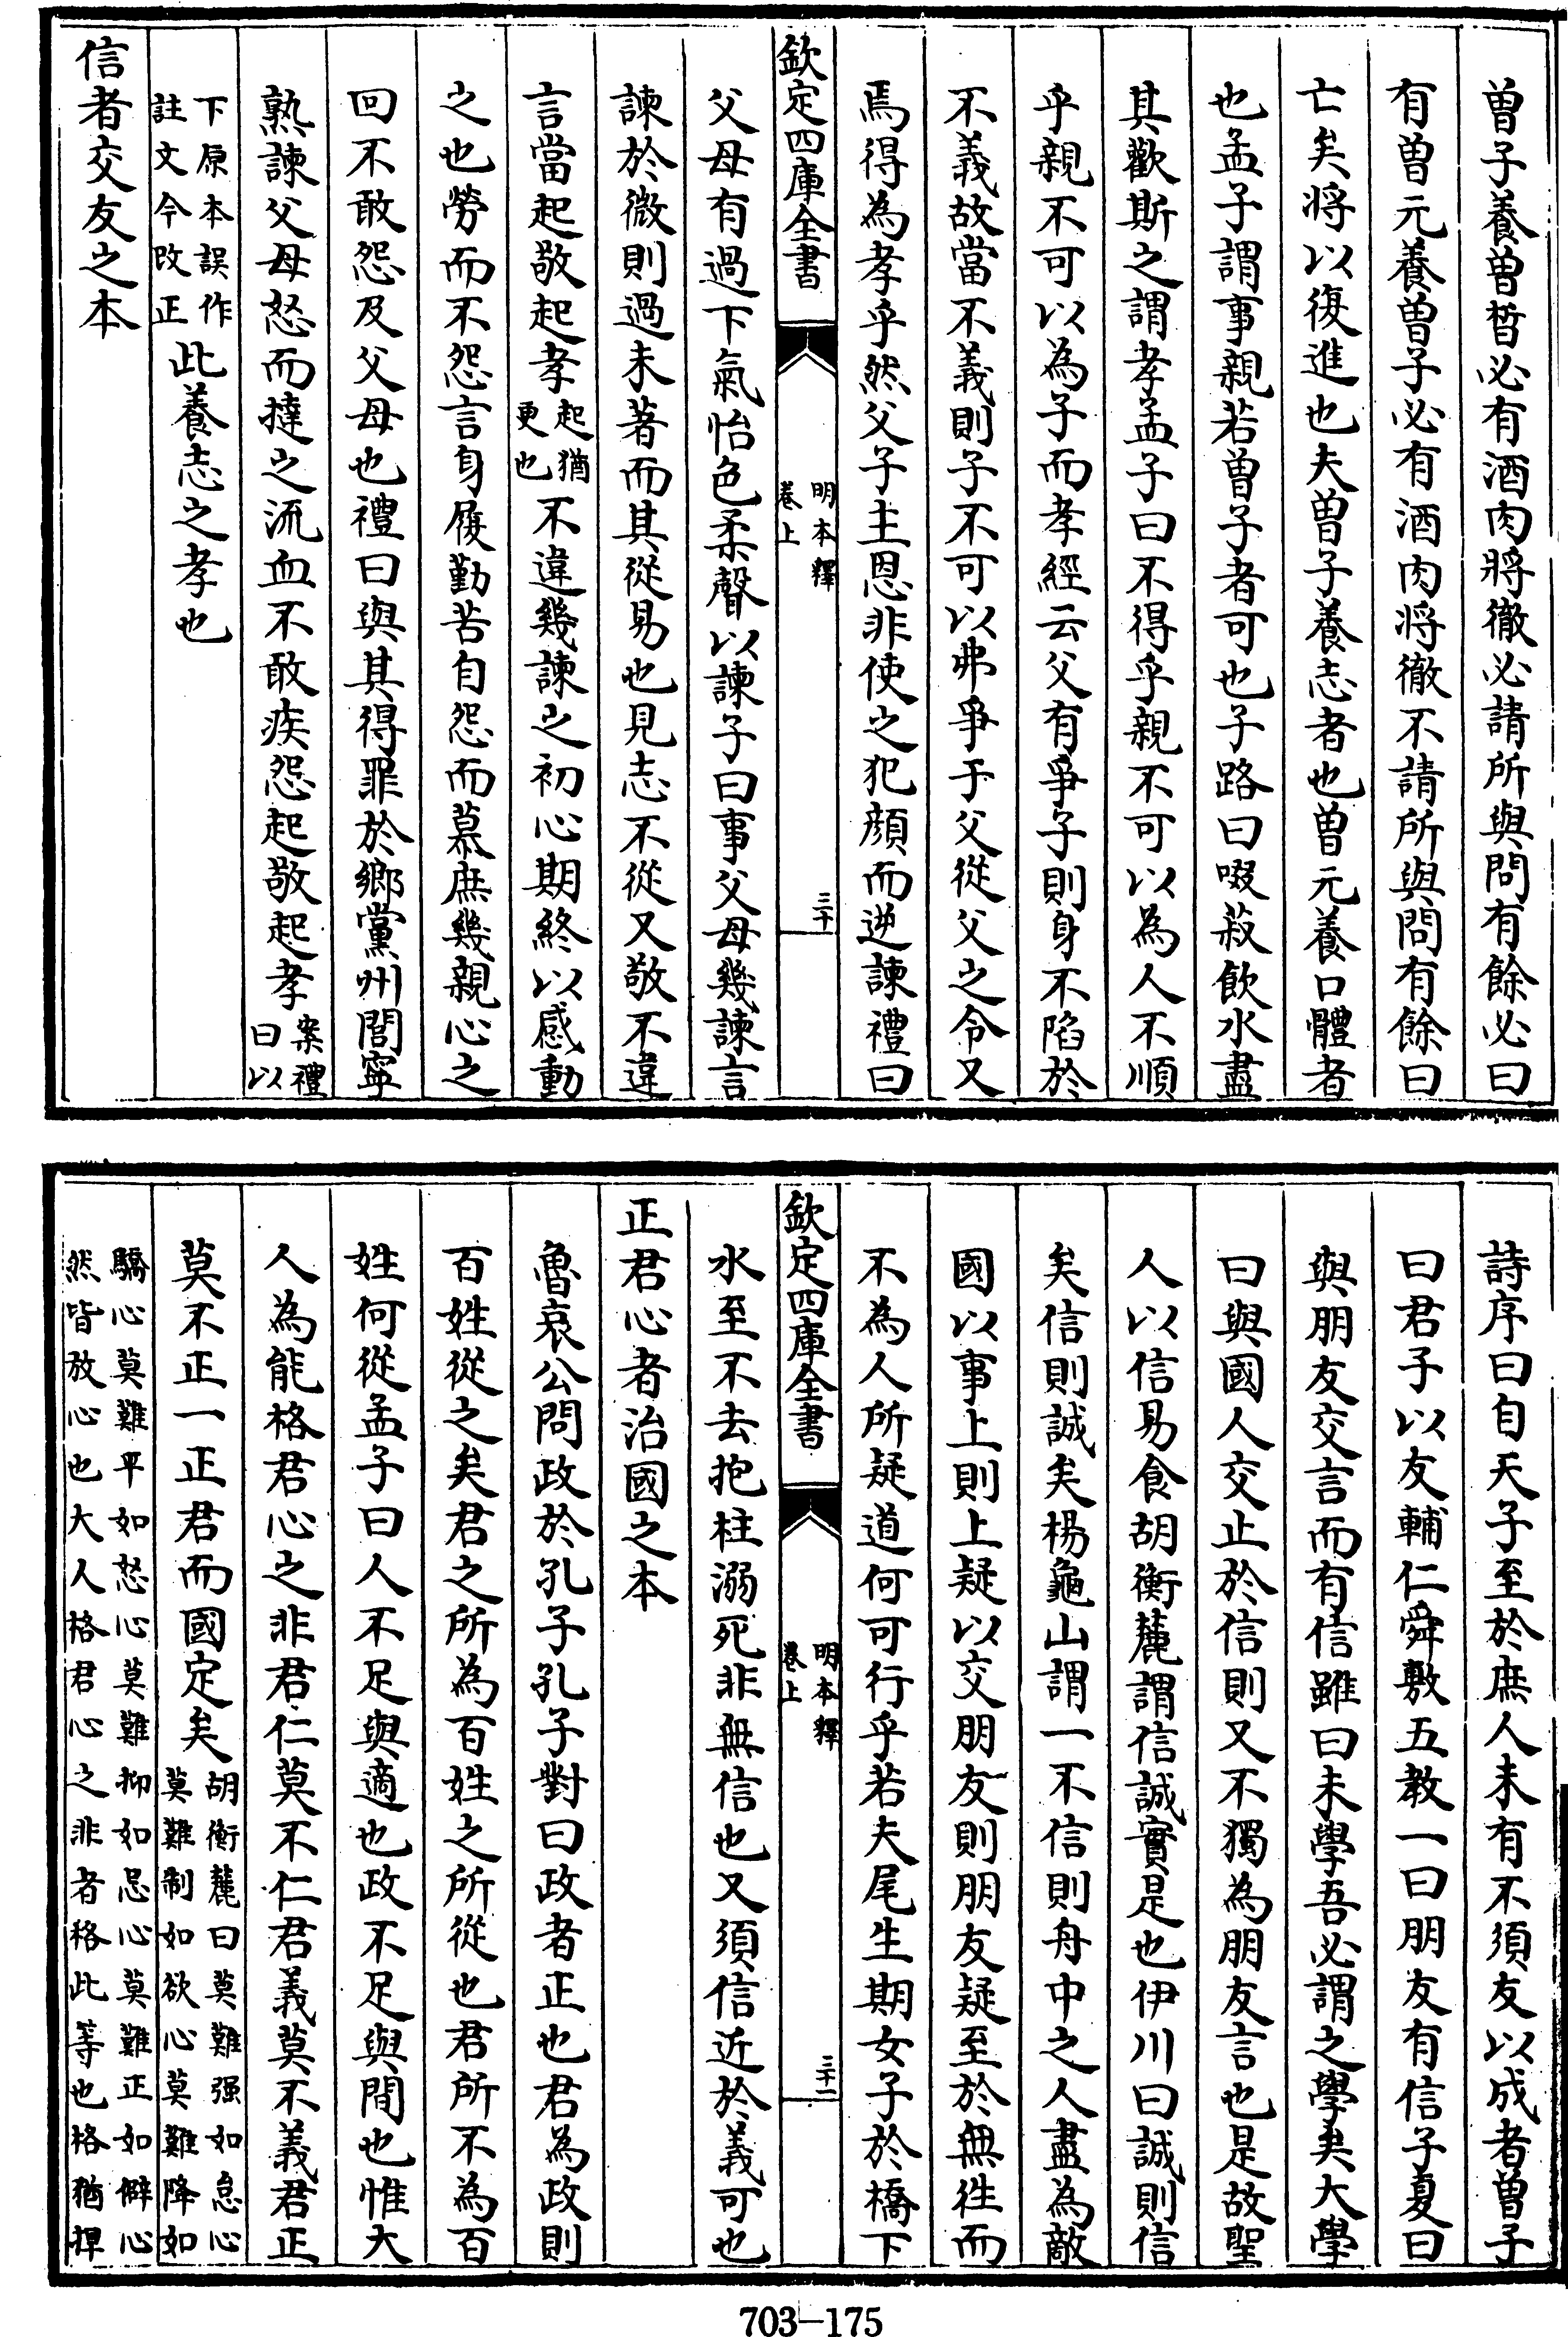 曾子養曾晳必有酒肉將徹必請所與問有餘必曰
有曾元養曾子必有酒肉将徹不請所與問有餘曰
亡矣将以復進也夫曾子養志者也曾元養口體者
也孟子謂事親若曾子者可也子路曰啜菽飲水盡
其歡斯之謂孝孟子曰不得乎親不可以為人不順
乎親不可以為子而孝經云父有爭子則身不陷於
不義故當不義則子不可以弗爭于父從父之令又
焉得為孝乎然父子主恩非使之犯顔而逆諫禮曰
欽定四庫全書
明本釋
卷上
三十
父母有過下氣怡色柔聲以諫子曰事父母幾諫言
諫於微則過未著而其從易也見志不從又敬不違
言當起敬起孝起猶更也不違幾諫之初心期終以感動
之也勞而不怨言身履勤苦自怨而慕庶幾親心之
回不敢怨及父母也禮曰與其得罪於鄉黨州閭寧
熟諫父母怒而撻之流血不敢疾怨起敬起孝案禮曰以
下原本誤作註文今改正此養志之孝也
信者交友之本
詩序曰自天子至於庶人未有不須友以成者曾子
曰君子以友輔仁舜敷五教一曰朋友有信子夏曰
與朋友交言而有信雖曰未學吾必謂之學矣大學
曰與國人交止於信則又不獨為朋友言也是故聖
人以信易食胡衡麓謂信誠實是也伊川曰誠則信
矣信則誠矣楊龜山謂一不信則舟中之人盡為敵
國以事上則上疑以交朋友則朋友疑至於無徃而
不為人所疑道何可行乎若夫尾生期女子於橋下
欽定四庫全書
明本釋
卷上
三十一
水至不去抱柱溺死非無信也又須信近於義可也
正君心者治國之本
魯哀公問政於孔子孔子對曰政者正也君為政則
百姓從之矣君之所為百姓之所從也君所不為百
姓何從孟子曰人不足與適也政不足與間也惟大
人為能格君心之非君仁莫不仁君義莫不義君正
莫不正一正君而國定矣胡衡麓曰莫難强如怠心莫難制如欲心莫難降如
驕心莫難平如怒心莫難抑如忌心莫難正如僻心
然皆放心也大人格君心之非者格此等也格猶捍
703-175